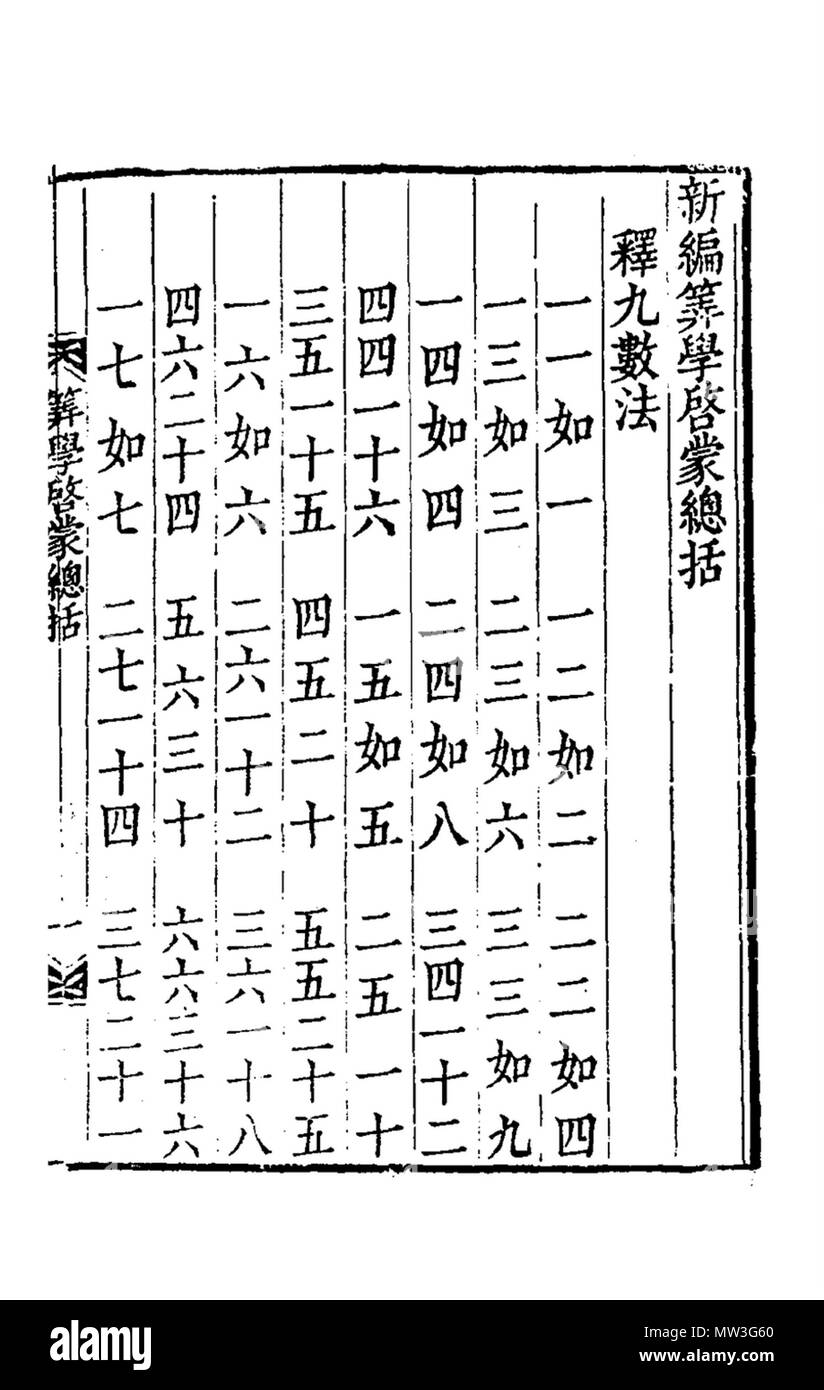 新編筭學啓蒙總括
釋九數法
一一如一 一二如二 二二如四
一三如三 二三如六 三三如九
一四如四 二四如八 三四一十二
四四一十六 一五如五 二五一十
三五一十五 四五二十 五五二十五
一六如六 二六一十二 三六一十八
四六二十四 五六三十 六六三十六
一七如七 二七一十四 三七二十一
筭學啓蒙總括 一
alamy
Image ID: MW3G60
www.alamy.com